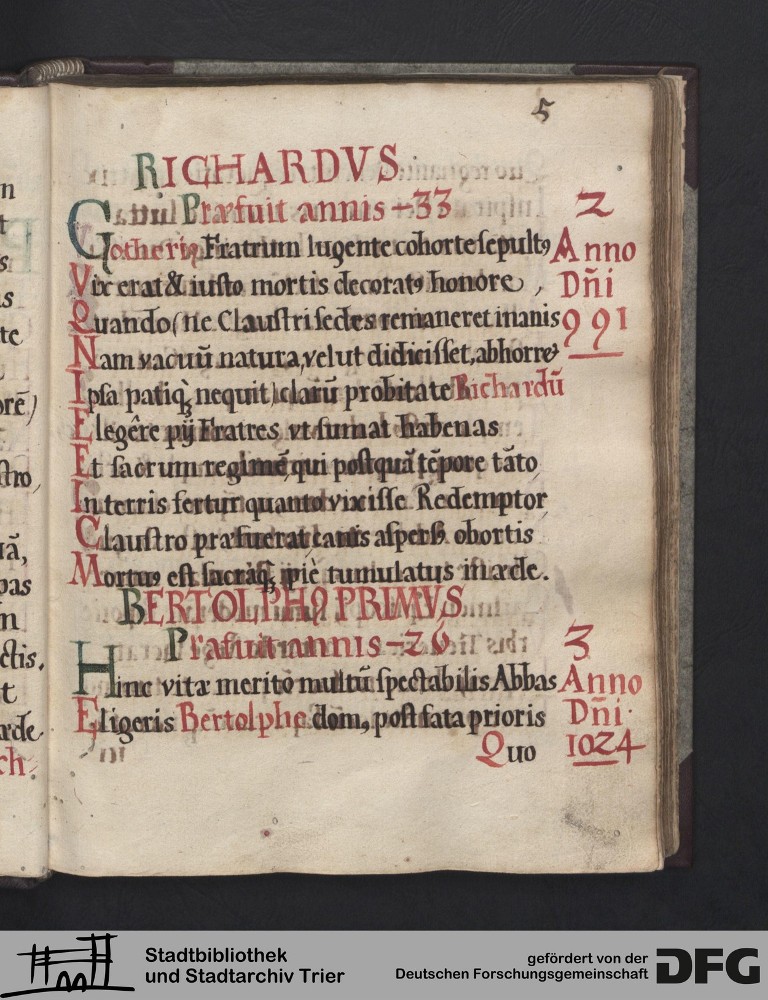 5
RICHARDVS
Præfuit annis -33
Gotheriꝰ Fratrum lugente cohorte sepultꝰ
Vix erat & iusto mortis decoratꝰ honore,
Quando (ne Claustri sedes remaneret inanis
Nam vacuũ natura, velut didicisset, abhorret
Ipsa patiq; nequit) clarũ probitate Richardũ
Elegêre pij Fratres vt sumat habenas
Et sacrum regimẽ, qui postquã tẽpore tãto
In terris fertur quanto vixisse Redemptor
Claustro præfuerat canis aspersꝰ obortis
Mortuꝰ est sacraq; piè tumulatus in æde.
2
Anno
Dñi
991
BERTOLPHꝰ PRIMVS
Præfuit annis -26
Hinc vitæ merito multũ spectabilis Abbas
Eligeris Bertolphe domꝰ, post fata prioris
Quo
3
Anno
Dñi
1024
n
t
s
as
te
orẽ)
stro,
uã,
pas
n
ctis.
t
æde
ch.
Stadtbibliothek
und Stadtarchiv Trier
gefördert von der
Deutschen Forschungsgemeinschaft
DFG